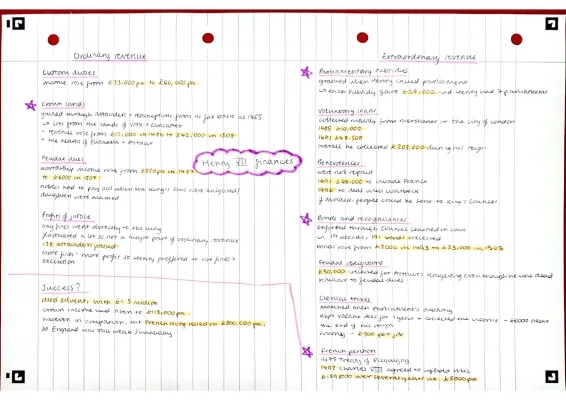 Ordinary revenue
Custom duties
income rose from £33,000 pa to £40,000 pa
Crown lands
gained through attainders + resumption from as far back as 1455
↳ esp from the lands of York + Lancaster
• revenue rose from £12,000 in 1486 to £42,000 in 1508
• the deaths of
Feudal dues
wardship income rose from £350 pa in 1487
to £6000 in 1507
nobles had to pay aid when the king's sons were knighted/
daughters were married
Profits of justice
any fines went directly to the king
fluctuated a lot so not a major part of ordinary revenue
138 attainders passed
more fines = more profit so Henry preferred to use fines >
execution
Success?
died solvent with
crown income had risen to £113,000 pa
however in comparison, the French king raked in £800,000 pa,
so England was still weak financially
Henry VII finances
Extraordinary revenue
Parliamentary subsidies
granted when Henry called parliament
↳ each subsidy gave and Henry had 7 parliaments
Voluntary loans
collected mainly from merchants or the city of London
1485 £10,000
1491
overall he collected £203,000 during his reign
Benevolences
were not repaid
1491 £48,000 to invade France
1496 to deal with Warbeck
if avoided, people called to the King's Council
Bonds and recognisances
enforced through Council Learned in Law
in 1st decade, 191 bonds collected
bonds rose from £3000 in 1493 to £35,000 in 1505
Feudal obligations
£30,000 collected for Arthur's knighting even though he was dead
similar to feudal dues
Clerical taxes
matched each parliament's subsidy
kept vacant sees for 1 year + collected the income - £6000 near
the end of his reign
simony - £300 per job
French pension
1475 Treaty of Picquigny
1492 Charles VIII agreed to uphold this
£159,000 over several years at £5000 pa